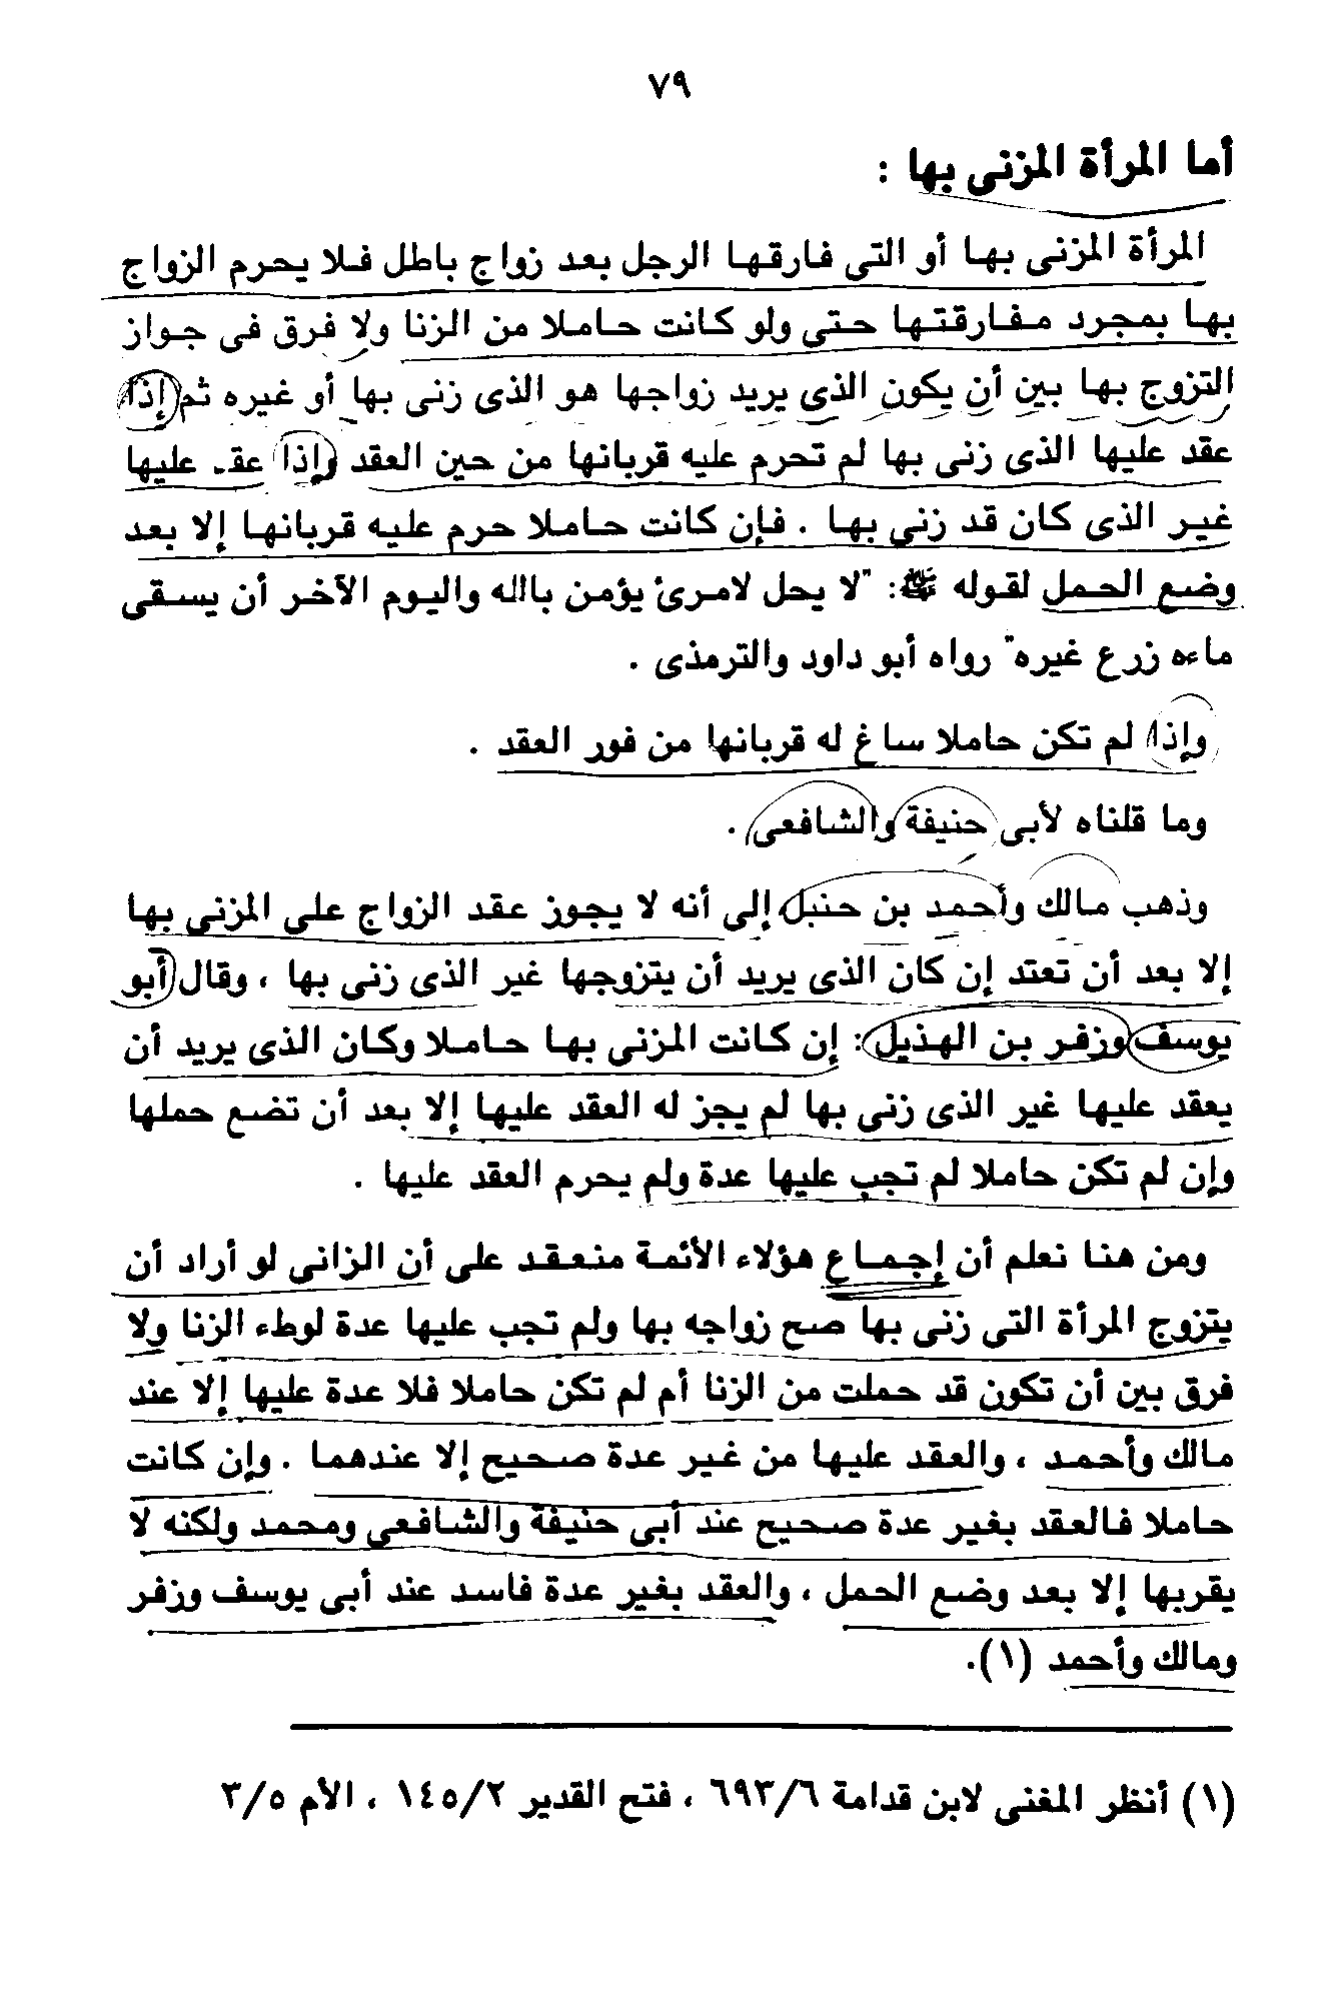 ٧٩
أما المرأة المزنى بها :
المرأة المزنى بها أو التى فارقها الرجل بعد زواج باطل فلا يحرم الزواج
بها بمجرد مفارقتها حتى ولو كانت حاملا من الزنا ولا فرق فى جواز
التزوج بها بين أن يكون الذى يريد زواجها هو الذى زنى بها أو غيره ثم إذا
عقد عليها الذى زنى بها لم تحرم عليه قربانها من حين العقد وإذا عقد عليها
غير الذى كان قد زنى بها . فإن كانت حاملا حرم عليه قربانها إلا بعد
وضع الحمل لقوله ﷺ: "لا يحل لامرئ يؤمن بالله واليوم الآخر أن يسقى
ماءه زرع غيره" رواه أبو داود والترمذى .
وإذا لم تكن حاملا ساغ له قربانها من فور العقد .
وما قلناه لأبى حنيفة والشافعى .
وذهب مالك وأحمد بن حنبل إلى أنه لا يجوز عقد الزواج على المزنى بها
إلا بعد أن تعتد إن كان الذى يريد أن يتزوجها غير الذى زنى بها ، وقال أبو
يوسف وزفر بن الهذيل: إن كانت المزنى بها حاملا وكان الذى يريد أن
يعقد عليها غير الذى زنى بها لم يجز له العقد عليها إلا بعد أن تضع حملها
وإن لم تكن حاملا لم تجب عليها عدة ولم يحرم العقد عليها .
ومن هنا نعلم أن إجماع هؤلاء الأئمة منعقد على أن الزانى لو أراد أن
يتزوج المرأة التى زنى بها صح زواجه بها ولم تجب عليها عدة لوطء الزنا ولا
فرق بين أن تكون قد حملت من الزنا أم لم تكن حاملا فلا عدة عليها إلا عند
مالك وأحمد ، والعقد عليها من غير عدة صحيح إلا عندهما . وإن كانت
حاملا فالعقد بغير عدة صحيح عند أبى حنيفة والشافعى ومحمد ولكنه لا
يقربها إلا بعد وضع الحمل ، والعقد بغير عدة فاسد عند أبى يوسف وزفر
ومالك وأحمد (١).
(١) أنظر المغنى لابن قدامة ٦٩٣/٦ ، فتح القدير ١٤٥/٢ ، الأم ٣/٥